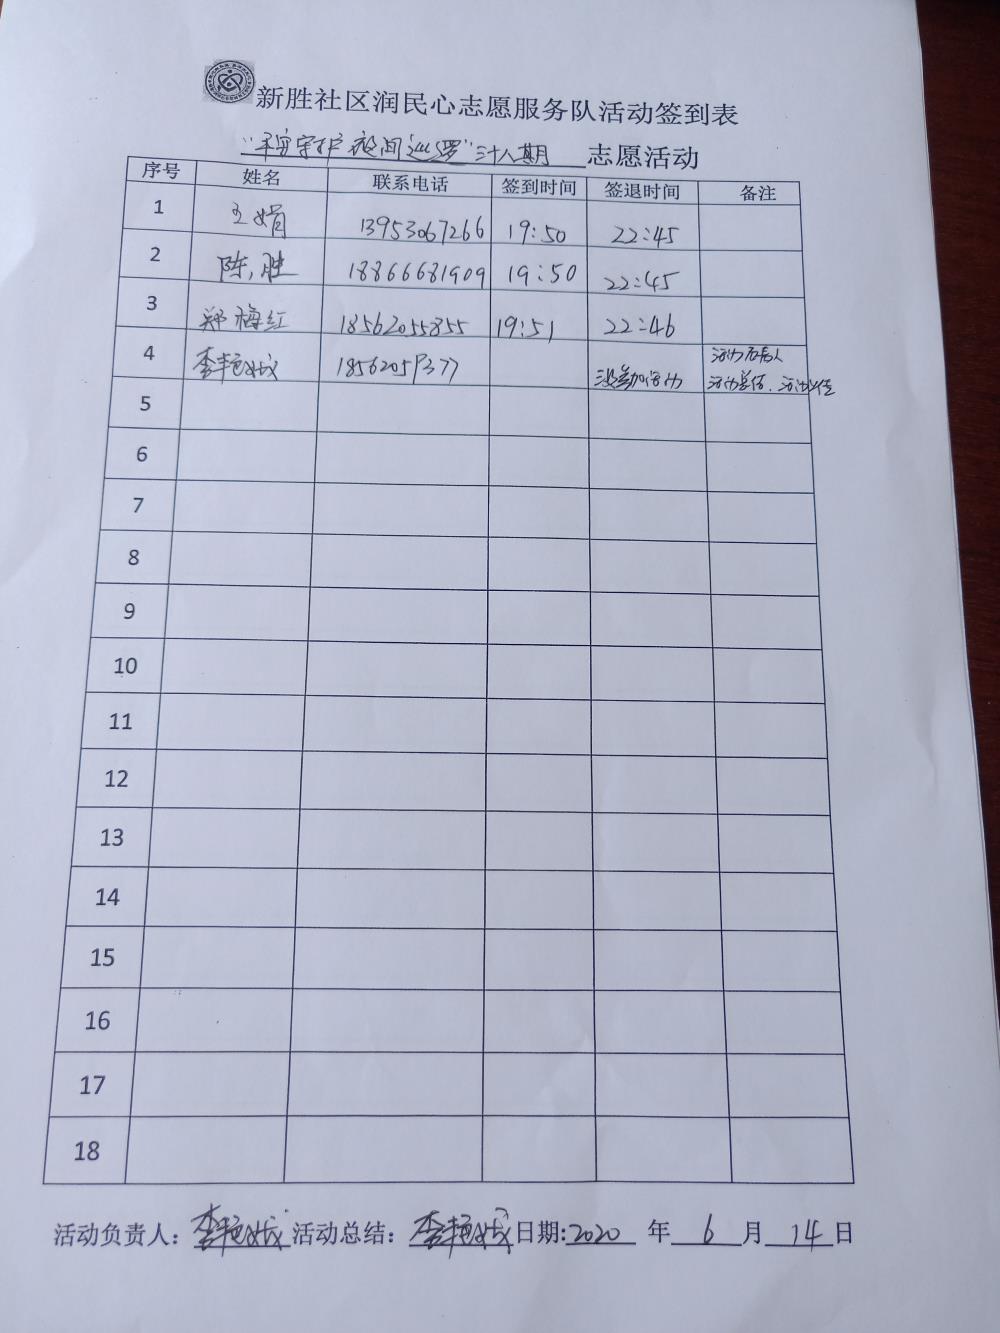 新胜社区润民心志愿服务队活动签到表
“平安守护夜间巡逻”三十八期 志愿活动
序号 姓名 联系电话 签到时间 签退时间 备注
1 王娟 13953067266 19:50 22:45
2 陈胜 18866681909 19:50 22:45
3 郑梅红 18562055855 19:51 22:46
4 李艳 没参加活动 活动负责人
活动总结、活动宣传
5
6
7
8
9
10
11
12
13
14
15
16
17
18
活动负责人: 李艳 活动总结: 李艳 日期:2020 年 6 月 14 日